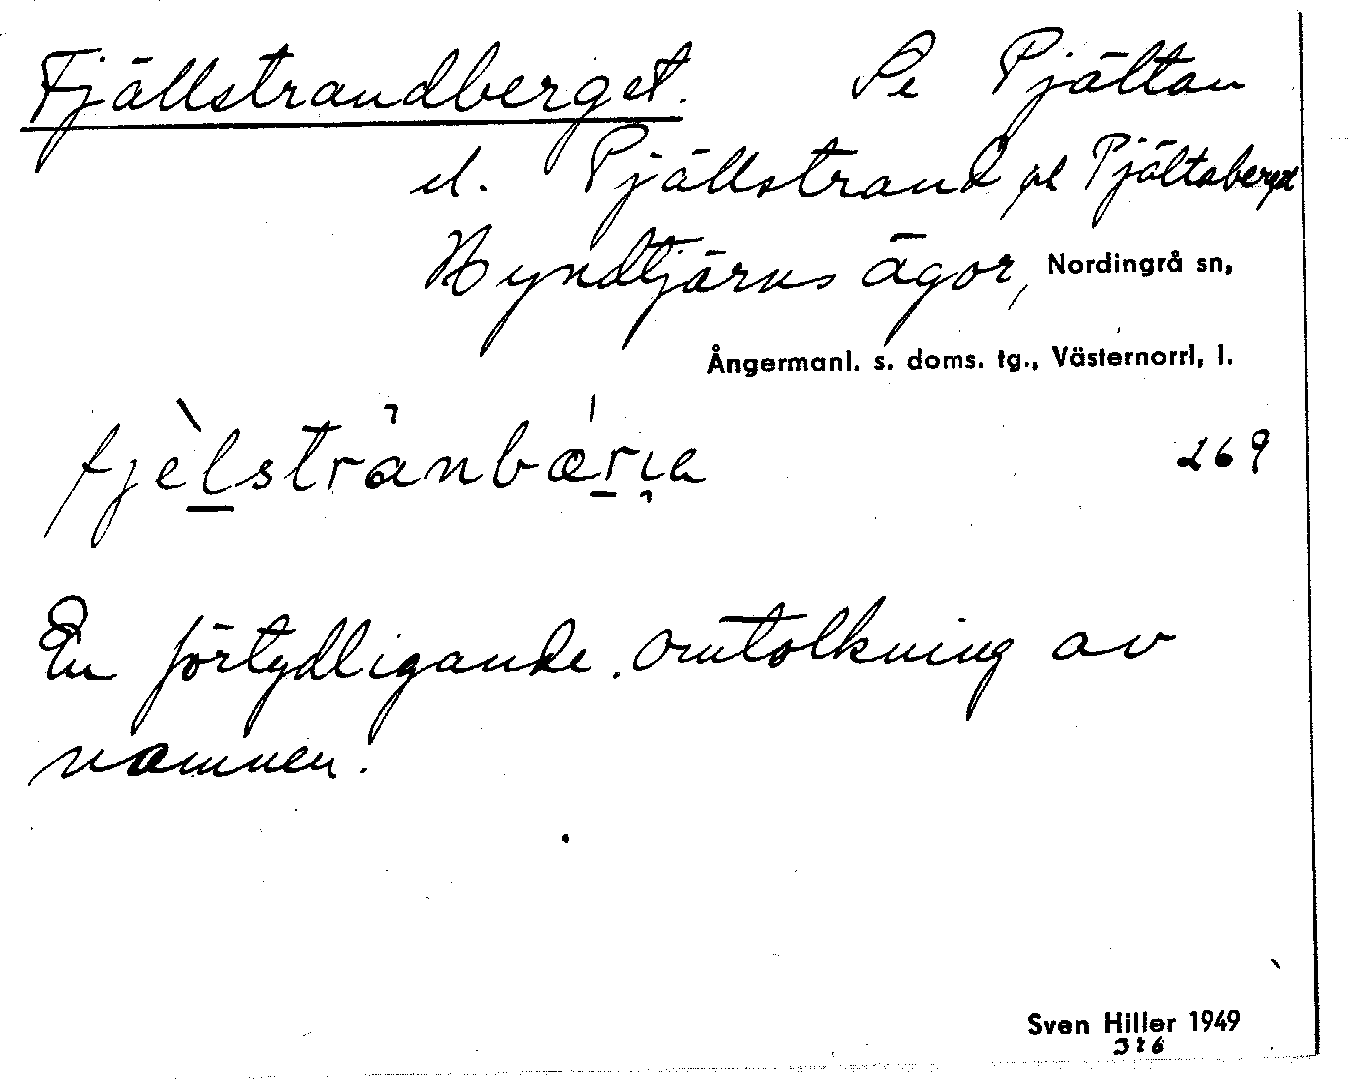 Fjällstrandberget. Se Pjältan
el. Pjällstrand o Pjältaberget
Hyndtjärns ägor, Nordingrå sn,
Ångermanl. s. doms. tg., Västernorrl. l.
fjèlstrànbærɩa 269
En förtydligande omtolkning av
namnen.
Sven Hiller 1949
326